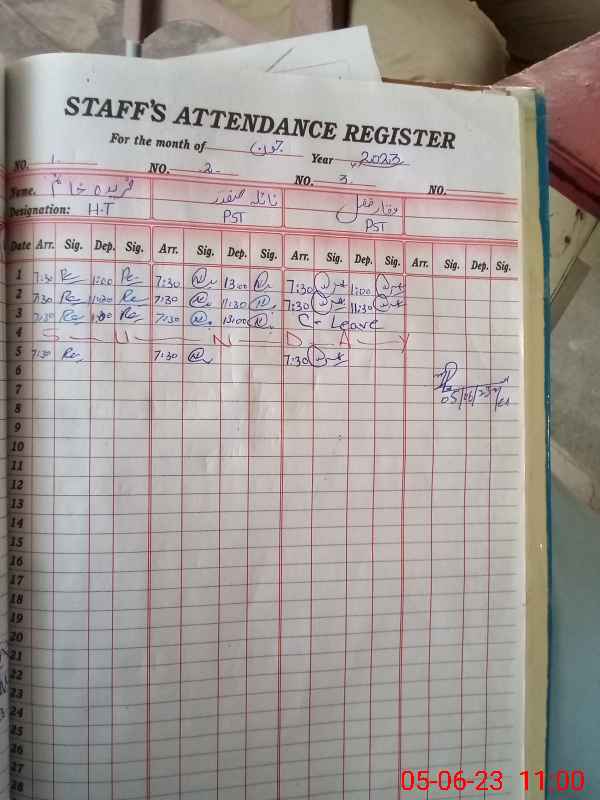 STAFF'S ATTENDANCE REGISTER
For the month of جون Year 2023
NO. 1. NO. 2. NO. 3. NO.
Name. فریدہ خانم نائلہ صفدر وقار
Designation: H.T PST PST
Date Arr. Sig. Dep. Sig. Arr. Sig. Dep. Sig. Arr. Sig. Dep. Sig. Arr. Sig. Dep. Sig.
1 7:30 1:00 7:30 13:00 7:30 1:00
2 7:30 11:30 7:30 11:30 7:30 11:30
3 7:30 7:30 13:00 C- Leave
4 S U N D A Y
5 7:30 7:30 7:30
6
7
8
9
10
11
12
13
14
15
16
17
18
19
20
21
22
23
24
25
26
27
28
05-06-23 11:00